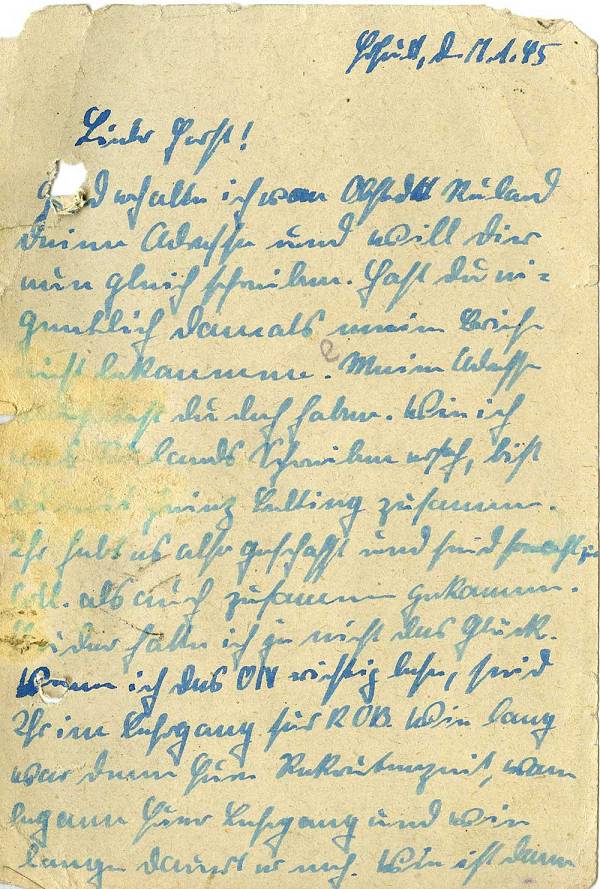 d. 11.1.45
Lieber Horst!
erhalte ich von Ruland
deine Adresse und will dir
nun gleich schreiben. Hast du ei=
gentlich damals meinen Brief
nicht bekommen? Meine Adresse
du doch haben. Wie ich
aus Rulands Schreiben ersah, bist
du mit Heinz zusammen.
Ihr habt es also geschafft und seid
als auch zusammen gekommen.
Leider hatte ich ja nicht das Glück.
Wenn ich das richtig lese, seid
Ihr im Lehrgang für ROB. Wie lang
war denn Eure Rekrutenzeit, wann
begann Euer Lehrgang und wie
lange dauert er noch. Wie ist denn